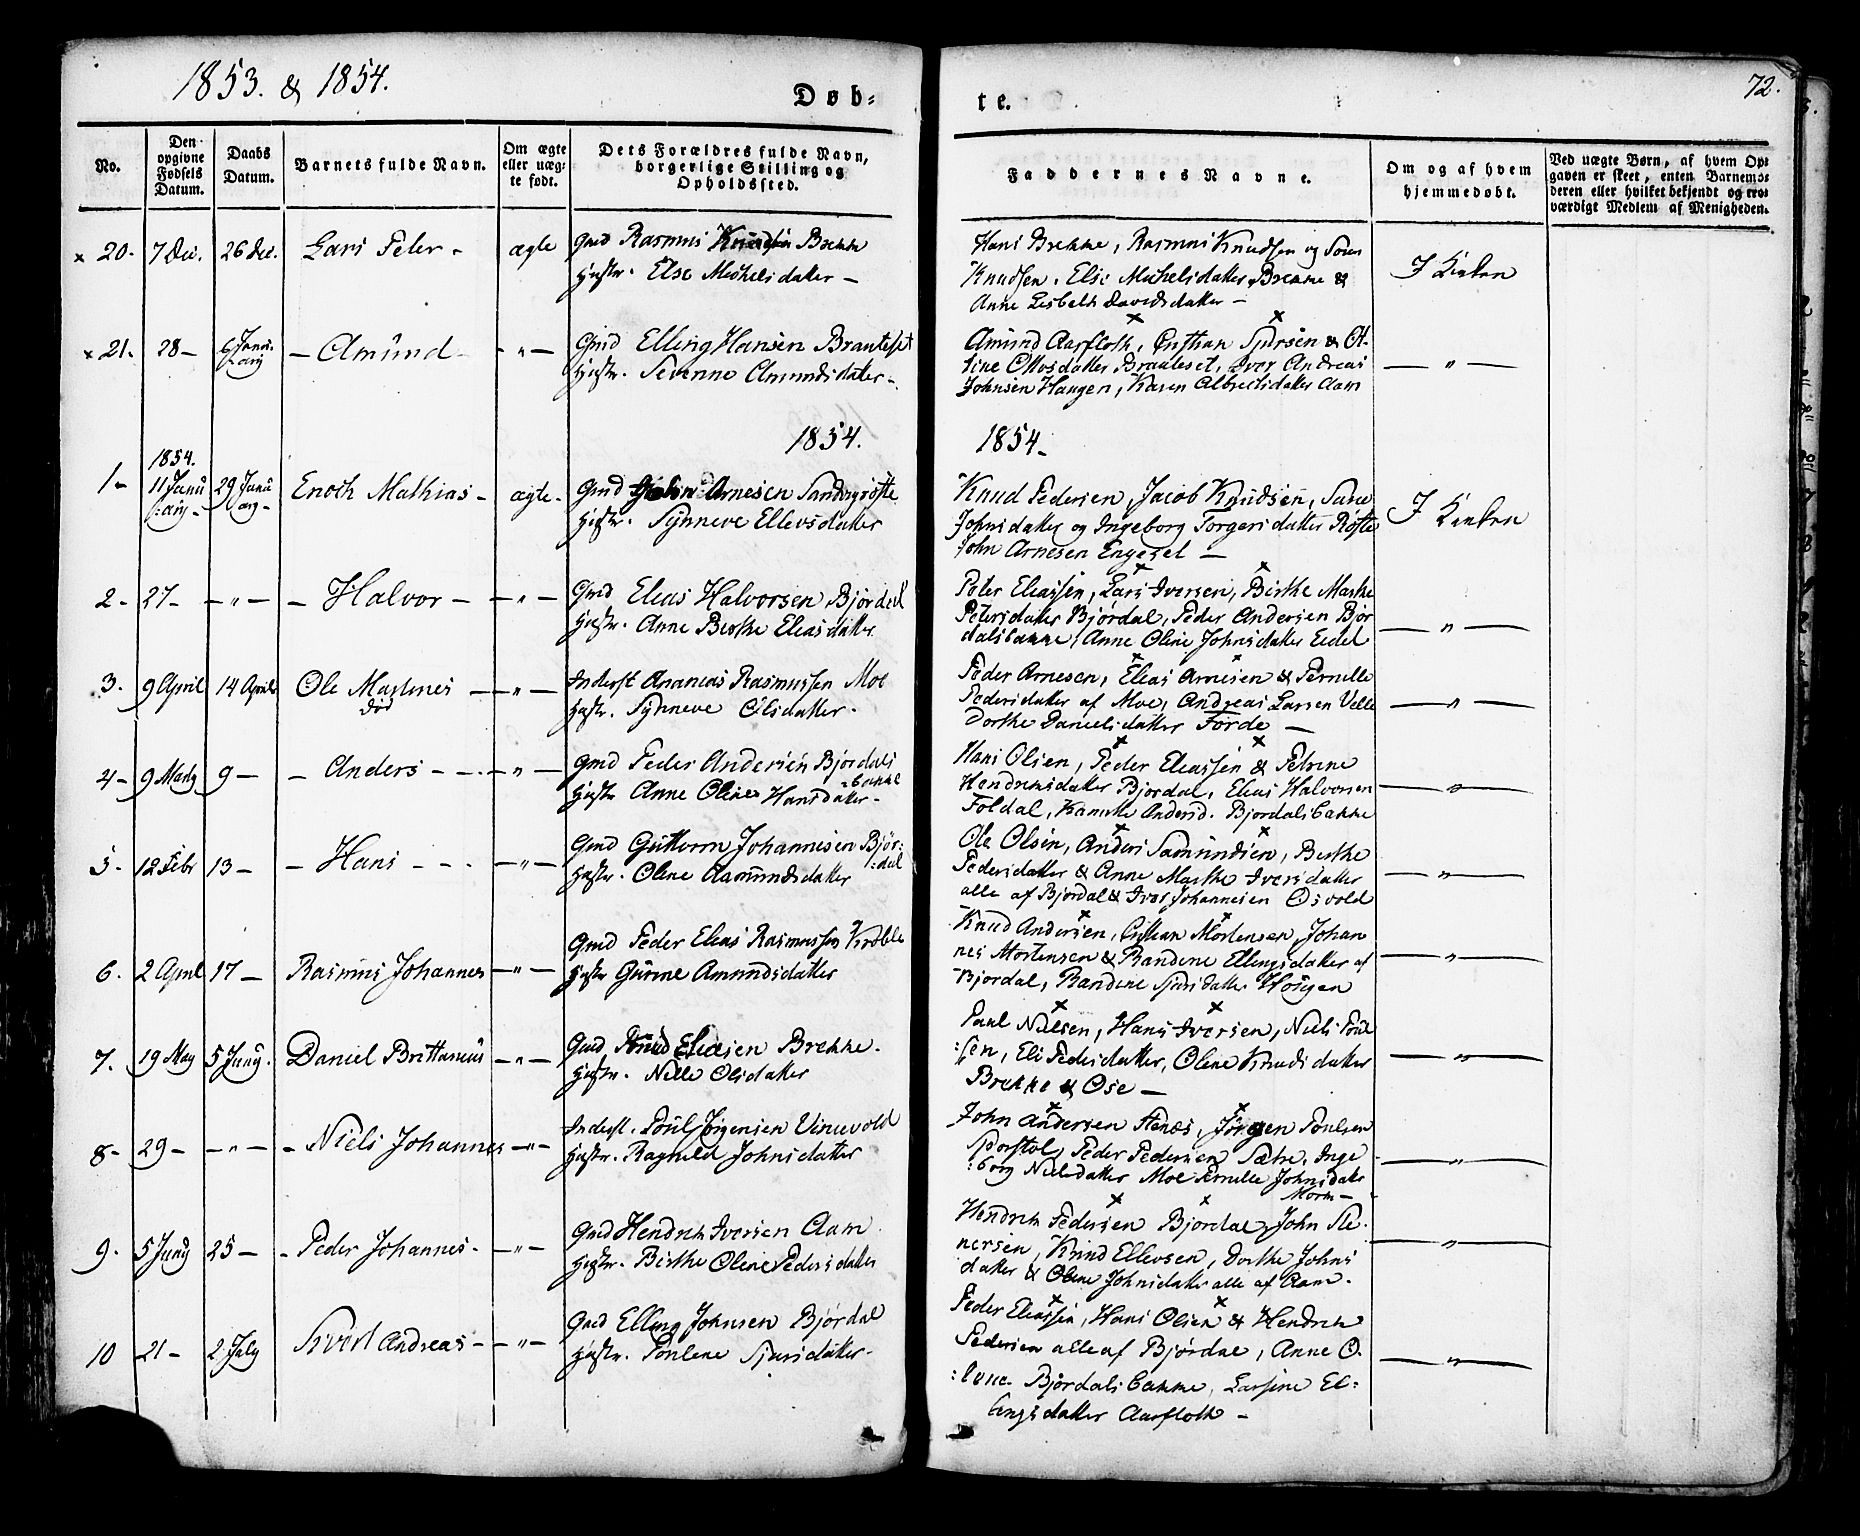 1853. & 1854.
Døb-
te.
72.
No.
Den opgivne Fødsels Datum.
Daabs Datum.
Barnets fulde Navn.
Om ægte eller uæg-te født.
Dets Forældres fulde Navn, borgerlige Stilling og Opholdssted.
Faddernes Navne.
Om og af hvem hjemmedøbt.
Ved uægte Børn, af hvem Op-gaven er skeet, enten Barnemo-deren eller hvilket bekjendt og tro-værdigt Medlem af Menigheden.
x 20. 7 Dec. 26 Dec. Lars Peter - ægte Gmd Rasmus Knudsen Brekke
Hustr. Else Michelsdatter -
Hans Brekke, Rasmus Knudsen og Soren
Knudsen. Else Michelsdatter Brekke &
Anne Lisbeth Davidsdatter -
I Kirken
x 21. 28 - 6 Janu-ary - Amund - - " - Gmd Elling Hansen Brauteset
Hustr. Severine Amundsdatter -
Amund Aarfloth, Sjursen & O-
line Olsdatter Brauteset, Iver Andreas
Johnsen Haugen, Karen Albrectsdatter Aam
- " -
1854.
1854.
1854.
1 - 11 Janu:ary - 29 Janu ary - Enoch Mathias - ægte - Gmd John Arnesen Sandvigrøste
Hustr. Synneve Ellevsdatter
Knud Pedersen, Jacob Knudsen,
Johnsdatter og Ingeborg Torgersdatter Røste
John Arnesen Engeset -
I Kirken
2 - 27 - - " - - Halvor - - " - Gmd Elias Halvorsen Bjørdal
Hustr. Anne Berthe Eliasdatter
Peter Eliassen, Lars Iversen, Berthe Marthe
Petersdatter Bjørdal, Peder Andersen Bjør
dalsbakke, Anne Oline Johnsdatter Eidet
- " -
3. 9 April 14 April Ole Martinus - " - Inderst Ananias Rasmussen Moe
død
Hustr. Synneve Olsdatter -
Peder Arnesen, Elias Arnesen & Pernille
Pedersdatter af Moe, Andreas Larsen Velle
Dorthe Danielsdatter Førde -
- " -
4 - 9 Marty 9 - - Anders - - - " - Gmd Peder Andersen Bjørdals
bakke
Hustr Anne Oline Hansdatter -
Hans Olsen, Peder Eliassen & Petrine
Hendriksdatter Bjørdal, Elias Halvorsen
Foldal, Andersd. Bjordalsbakke
- " -
5. 12 Febr 13 - - Hans - - - - " - Gmd Guttorm Johannesen Bjør:
:dal
Hustr. Oline Aamundsdatter
Ole Olsen, Anders Samundsen, Berthe
Pedersdatter & Anne Marthe Iversdatter
alle af Bjordal & Iver Johannesen Osvold
- " -
6. 2 April 17 - Rasmus Johannes - " - Gmd Peder Elias Rasmussen Krøvle
Hustr Gurine Amundsdatter
Knud Andersen, Mortensen, Johan
nes Mortensen & Randine Ellingsdatter af
Bjordal, Randine Sjursdatter Hougen
- " -
7. 19 May 5 Juny. Daniel Brittanius - " - Gmd. Knud Eliasen Brekke.
Hustr. Nille Olsdatter
Paul Nilsen, Hans Iversen, Niels Poul
:sen, Eli Pedersdatter, Oline Knudsdatter
Brekke & Ose -
- " -
8 - 29 - - " - - Niels Johannes - " - Inderst. Poul Jørgensen Vinevold
Hustr. Ragnild Johnsdatter
John Andersen Stenes, Jørgen Poulsen
Sporstøl, Peder Pedersen Sætre, Inge
:borg Nielsdatter Moe Pernille Johnsdatter
- " -
9. 5 Juny 25 - - Peder Johannes - - " - Gmd Hendrik Iversen Aam
Hustr. Berthe Oline Pedersdatter
Hendrik Pedersen Bjordal, John Ste
nersen, Knud Ellevsen, Dorthe Johns
datter & Oline Johnsdatter alle af Aam.
- " -
10 21 - 2 July Sivert Andreas - - " - Gmd Elling Johnsen Bjørdal
Hustr. Poulene Sjursdatter -
Peder Eliassen, Hans Olsen & Hendrik
Pedersen alle af Bjørdal, Anne O-
:line Bjørdalsbakke, Larsine El:
lingsdatter Aarfloth -
- " -